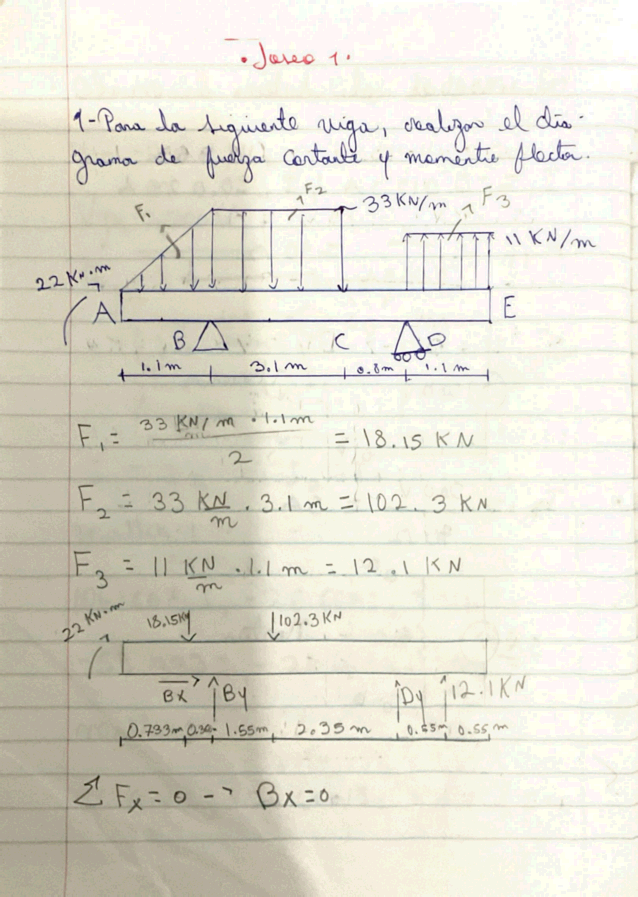 . Tarea 1.
1-Para la siguiente viga, realizar el dia-
grama de fuerza cortante y momento flector.
F1 F2 33 KN/m F3
11 KN/m
22 KN.m
A E
B C D
1.1m 3.1m 0.8m 1.1m
F1 = 33 KN/m . 1.1m / 2 = 18.15 KN
F2 = 33 KN/m . 3.1 m = 102.3 KN
F3 = 11 KN/m . 1.1 m = 12.1 KN
22 KN.m 18.15KN 102.3KN
Bx By Dy 12.1KN
0.733m 1.55m 2.35m 0.55m 0.55m
Σ Fx = 0 -> Bx = 0